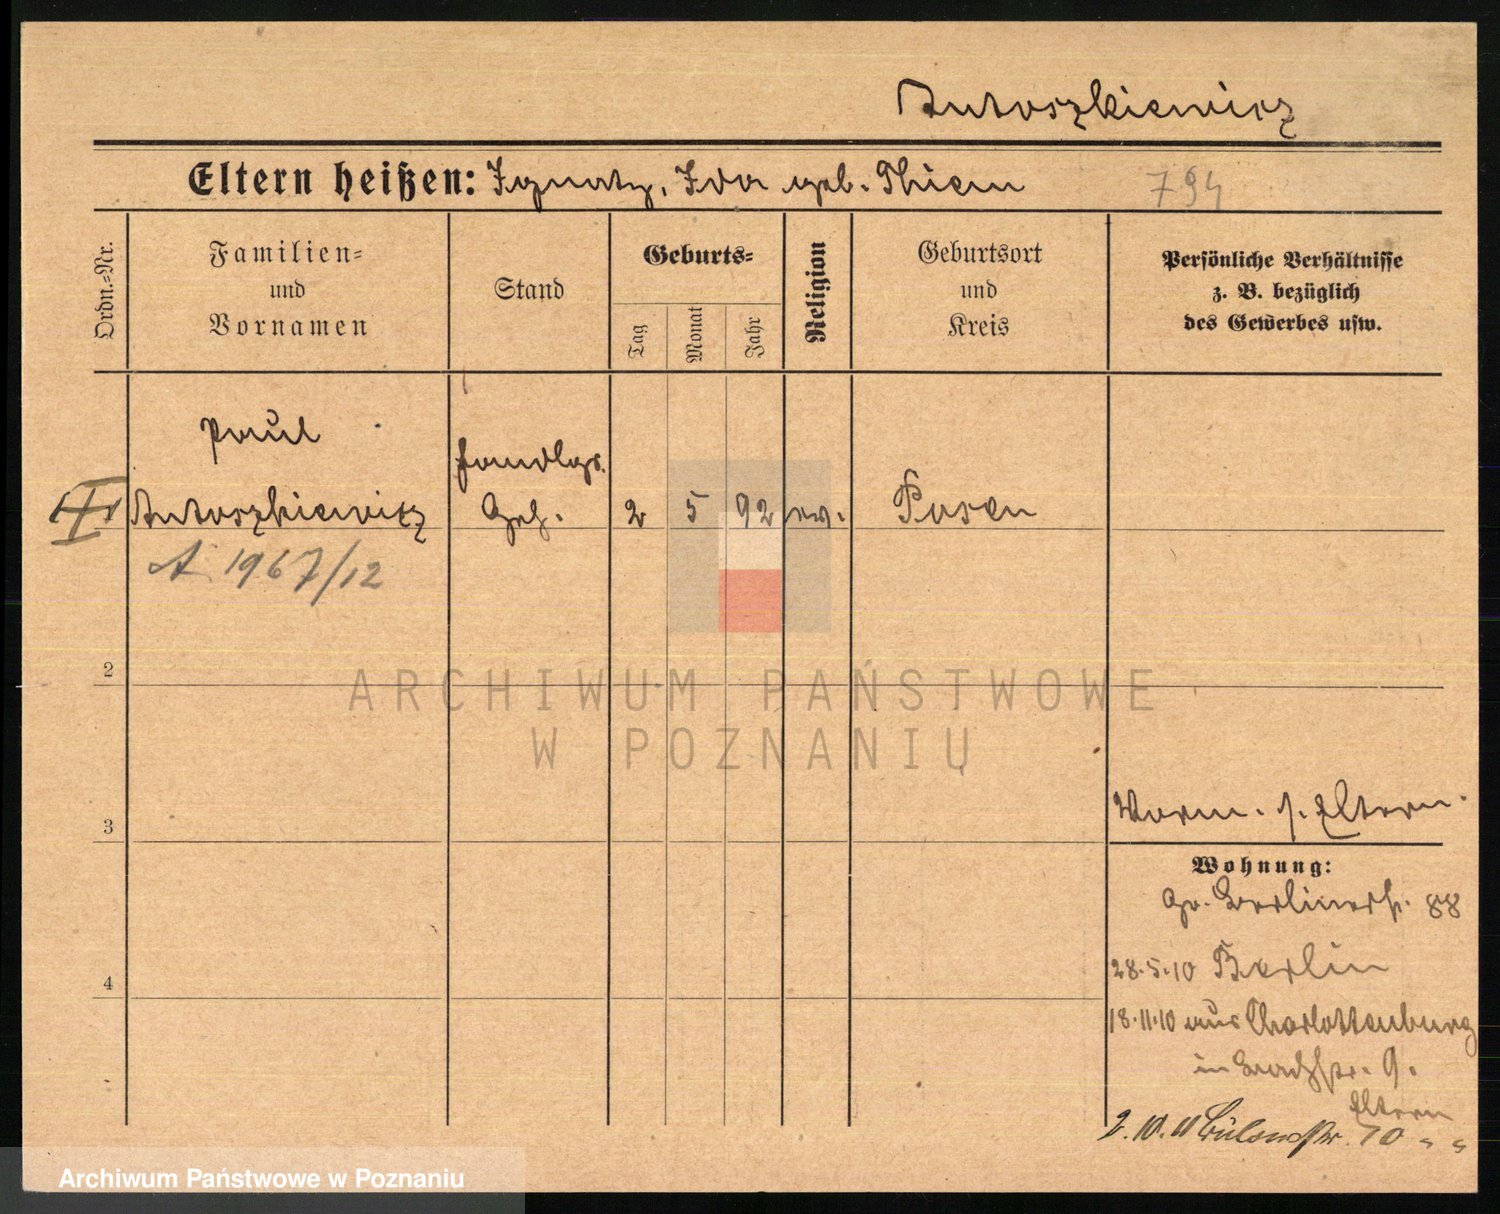 Antoszkiewicz
Eltern heißen: Ignatz, Ida geb. Thiem 794
Ordn.=Nr.
Familien=
und
Vornamen
Stand
Geburts=
Tag
Monat
Jahr
Religion
Geburtsort
und
Kreis
Persönliche Verhältnisse
z. B. bezüglich
des Gewerbes usw.
Paul
Antoszkiewitz
Handlgs.
Geh.
2 5 92 ev. Posen
A 1967/12
2
3
4
Vorm. s. Eltern.
Wohnung:
Gr. Berlinerstr. 88
28.5.10 Berlin
18.11.10 aus Charlottenburg
in 9.
Eltern
2.10.11 Bülowstr. 10 " "
ARCHIWUM PAŃSTWOWE
W POZNANIU
Archiwum Państwowe w Poznaniu